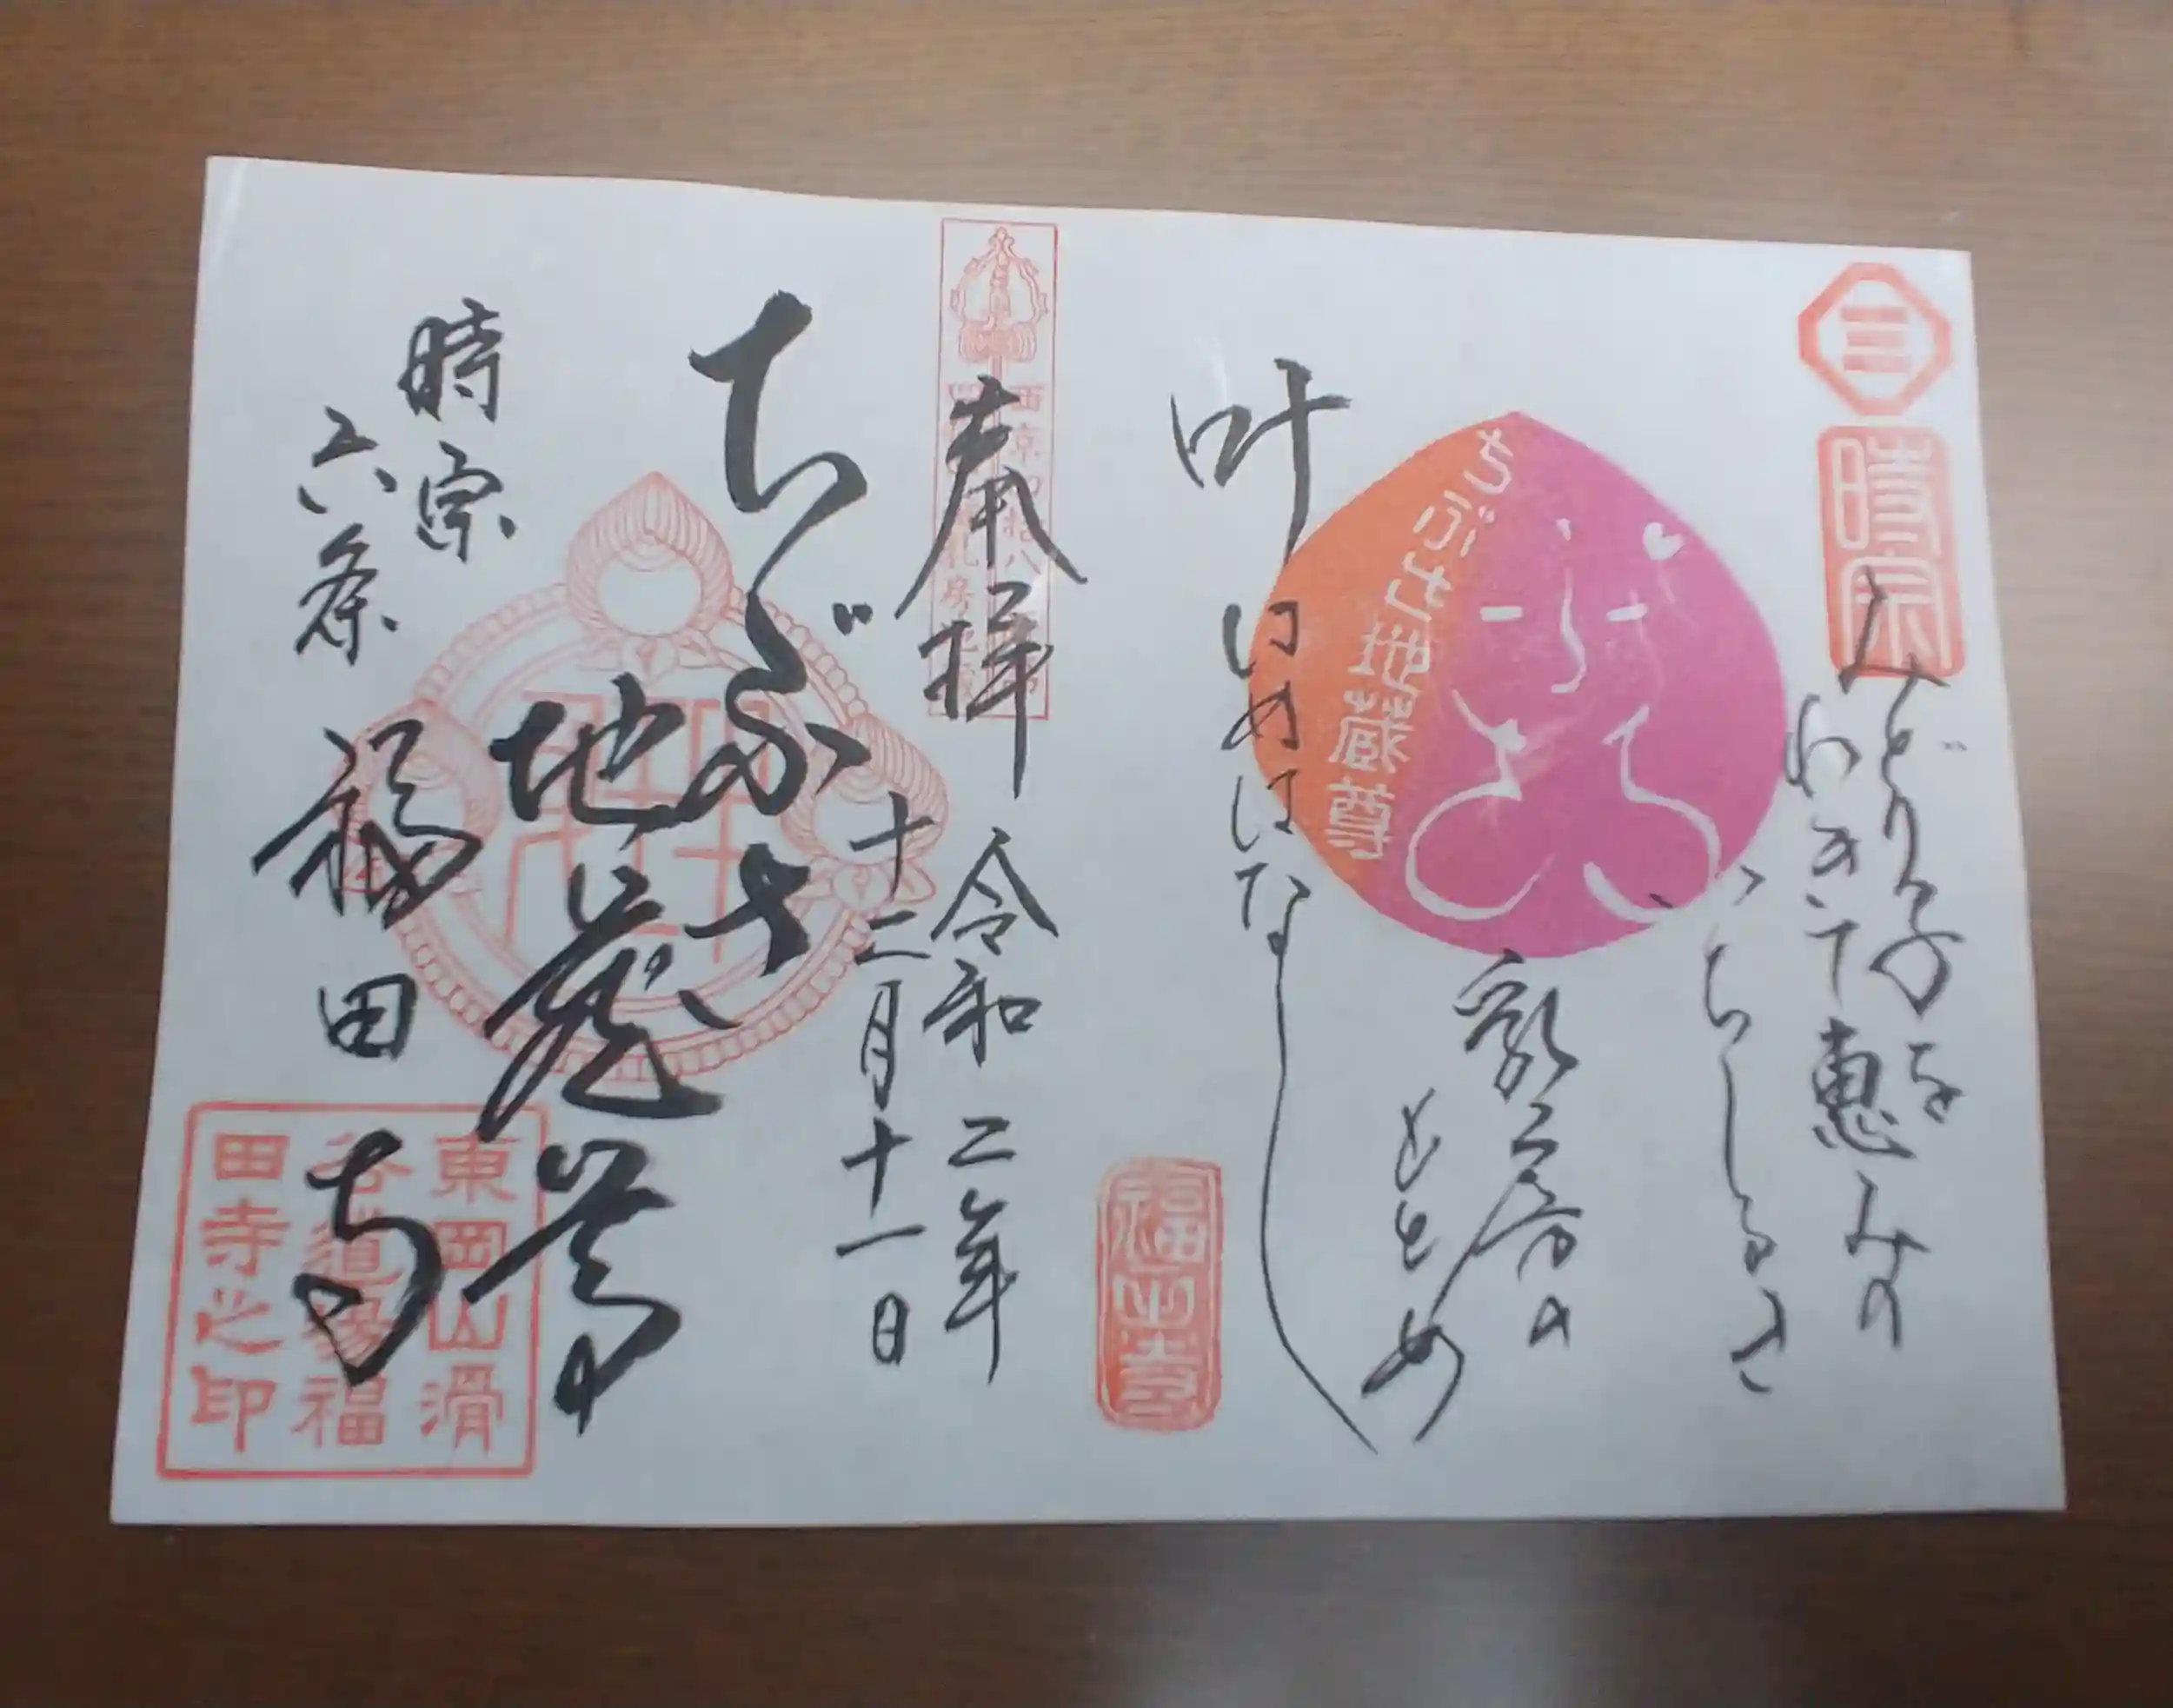 時宗
みどり子を
わきて恵みの
ちゝしるき
乳房の
もとめ
叶はぬはなし
ちぶさ地蔵尊
福田寺
奉拝
令和二年
十二月十一日
ちぶさ
地蔵尊
時宗
六条
福田寺
東岡山滑
谷道場福
田寺之印